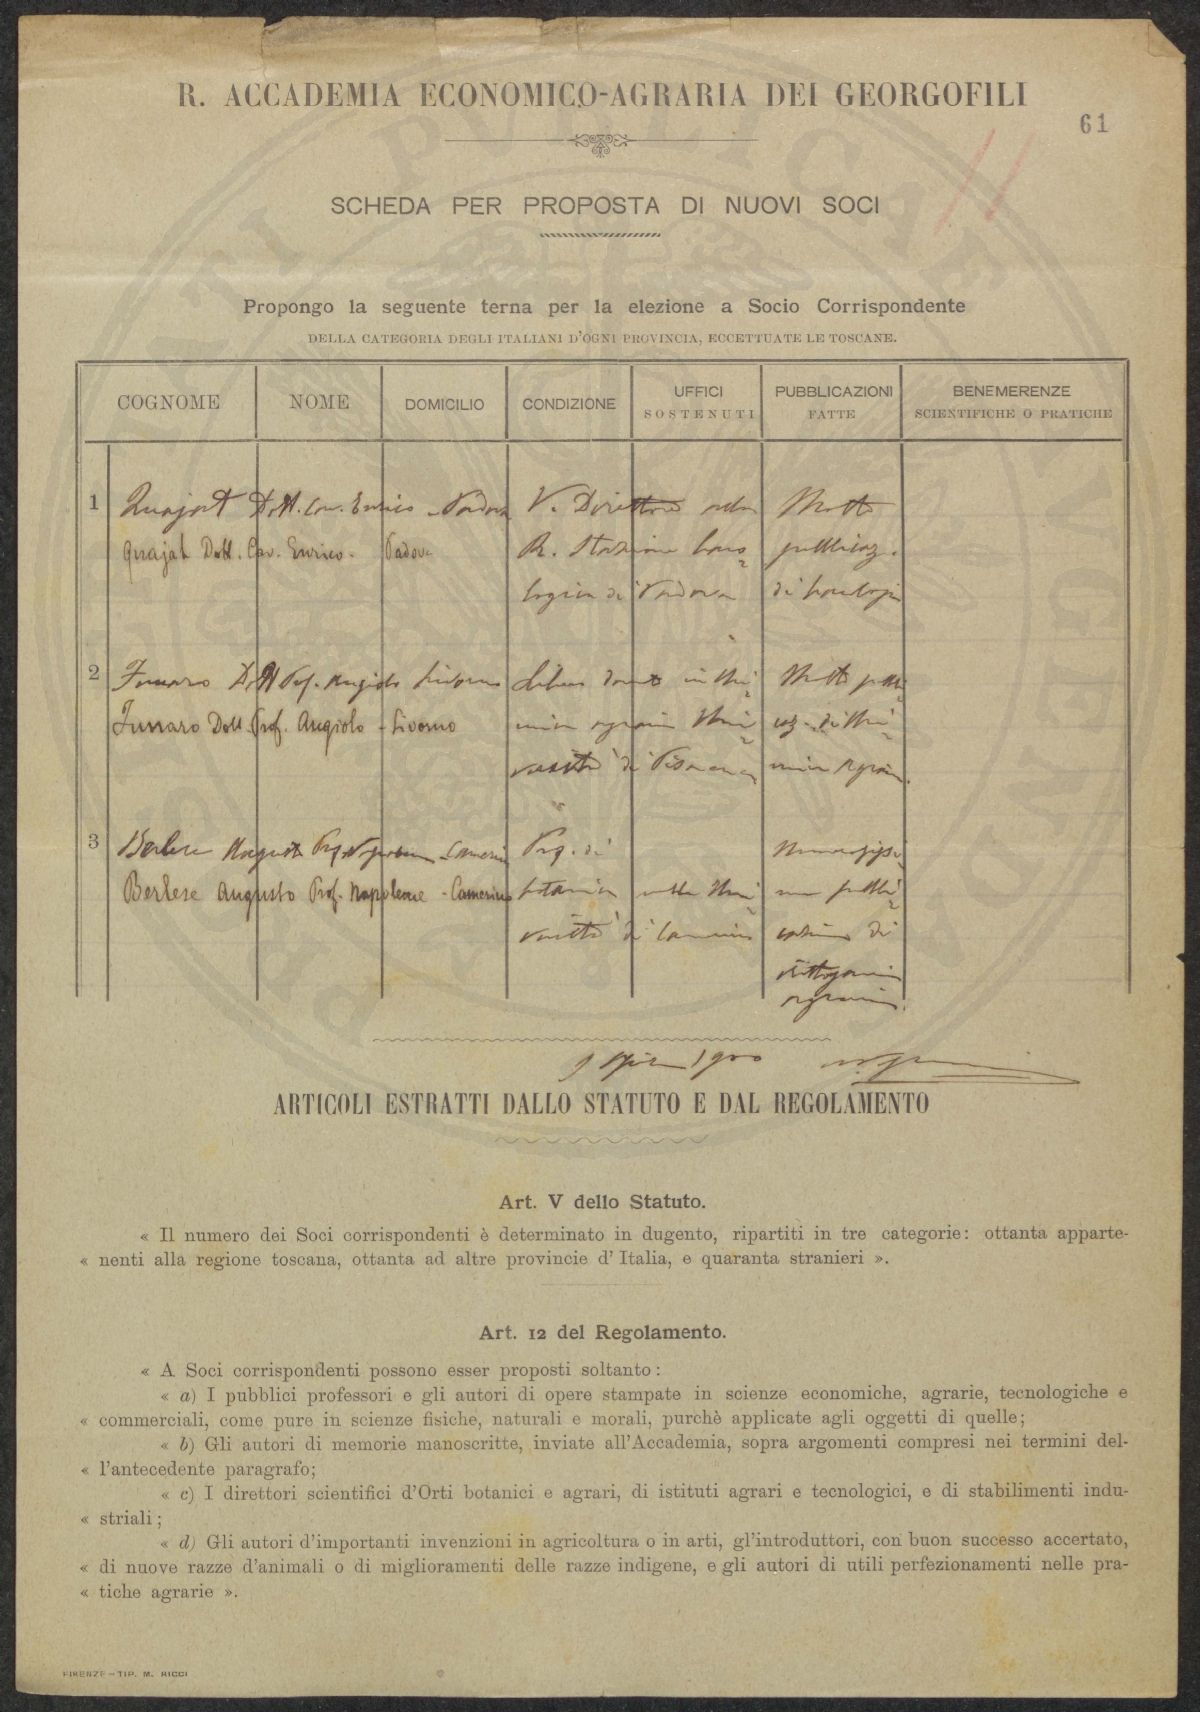 R. ACCADEMIA ECONOMICO-AGRARIA DEI GEORGOFILI
61
SCHEDA PER PROPOSTA DI NUOVI SOCI
Propongo la seguente terna per la elezione a Socio Corrispondente
DELLA CATEGORIA DEGLI ITALIANI D'OGNI PROVINCIA, ECCETTUATE LE TOSCANE.
COGNOME NOME DOMICILIO CONDIZIONE UFFICI SOSTENUTI PUBBLICAZIONI FATTE BENEMERENZE SCIENTIFICHE O PRATICHE
1 Quajat Dott. Cav. Enrico - Padova V. Direttore nella Molte
Quajat Dott. Cav. Enrico - Padova R. Stazione baco= pubblicaz.
logica di Padova di bacologia
2 Funaro Dott Prof. Angiolo Livorno Libero docente in chi= Molte pubbli=
Funaro Dott. Prof. Angiolo - Livorno mica agraria Uni= caz. di chi=
versità di Pisa mica agraria.
3 Berlese Augusto Prof. Napoleone - Camerino Prof. di Numerosissi=
Berlese Augusto Prof. Napoleone - Camerino botanica nella Uni= me pubbli=
versità di Camerino cazioni di
crittogamia
agraria.
9 1900
ARTICOLI ESTRATTI DALLO STATUTO E DAL REGOLAMENTO
Art. V dello Statuto.
« Il numero dei Soci corrispondenti è determinato in dugento, ripartiti in tre categorie: ottanta apparte-
« nenti alla regione toscana, ottanta ad altre provincie d'Italia, e quaranta stranieri ».
Art. 12 del Regolamento.
« A Soci corrispondenti possono esser proposti soltanto:
« a) I pubblici professori e gli autori di opere stampate in scienze economiche, agrarie, tecnologiche e
« commerciali, come pure in scienze fisiche, naturali e morali, purchè applicate agli oggetti di quelle;
« b) Gli autori di memorie manoscritte, inviate all'Accademia, sopra argomenti compresi nei termini del-
« l'antecedente paragrafo;
« c) I direttori scientifici d'Orti botanici e agrari, di istituti agrari e tecnologici, e di stabilimenti indu-
« striali;
« d) Gli autori d'importanti invenzioni in agricoltura o in arti, gl'introduttori, con buon successo accertato,
« di nuove razze d'animali o di miglioramenti delle razze indigene, e gli autori di utili perfezionamenti nelle pra-
« tiche agrarie ».
FIRENZE - TIP. M. RICCI